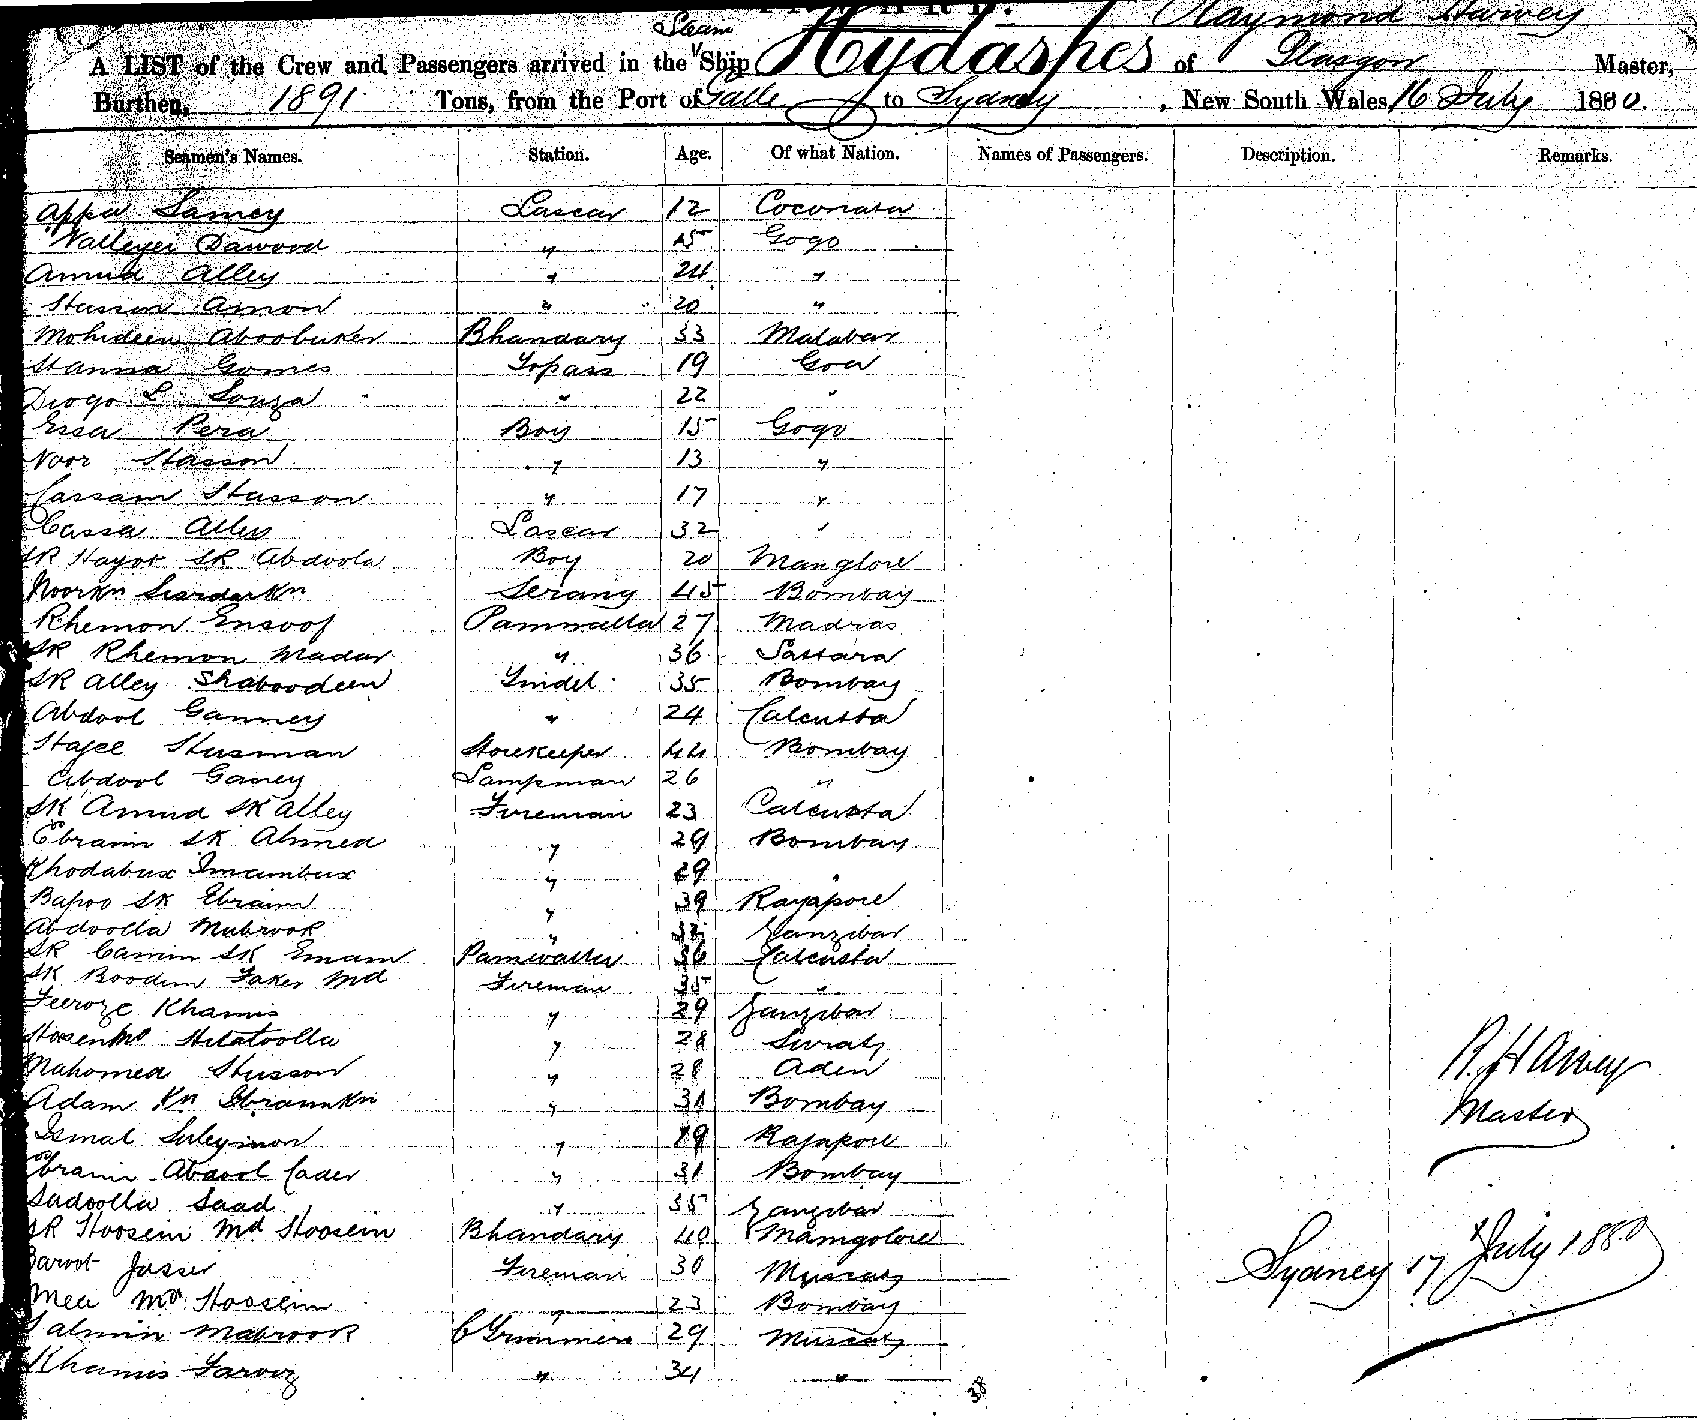 Raymond Harvey
Steam
A LIST of the Crew and Passengers arrived in the Ship Hydaspes of Glasgow Master,
Burthen, 1891 Tons, from the Port of Galle to Sydney, New South Wales 16 July 1880.
Seamen's Names. Station. Age. Of what Nation. Names of Passengers. Description. Remarks.
Appa Samey Lascar 12 Coconada
Valleyer Dawood " 15 Gogo
Amud Alley " 24 "
Hassan Amon " 20 "
Mohideen Aboobuker Bhandary 33 Malabar
Gomes Topass 19 Goa
Diogo D. Souza " 22 "
Essa Pera Boy 15 Gogo
Noor Hasson " 13 "
Cassam Husson " 17 "
Cassa Alley Lascar 32 "
SK Hayot SK Abdoola Boy 20 Manglore
Noorkn Sirdarkn Serang 45 Bombay
Rhemon Ensoof Paniwalla 27 Madras
SK Rhemon Madar " 36 Sattara
SK Alley Shaboodeen Tindel 35 Bombay
Abdool Ganney " 24 Calcutta
Hajee Husman Storekeeper 44 Bombay
Abdool Ganey Lampman 26 "
SK Amud SK Alley Fireman 23 Calcutta
Ebraim SK Ahmed " 29 Bombay
Khodabux Imambux " 29 "
Bapoo SK Ebraim " 39 Rayapore
Abdoolla Mabrook " 32 Zanzibar
SK Camin SK Emam Paniwalla 36 Calcutta
SK Boodin Faker Md Fireman 35 "
Feeroze Khamis " 29 Zanzibar
Hoosenkn " 28 Surat
Mahomed Husson " 28 Aden
Adam Kn Ebramkn " 31 Bombay
Ismal Suleyimon " 19 Rajapore
Ebraim Abdool Cader " 31 Bombay
Sadoolla Saad " 35 Zanzibar
SK Hoosein Md Hoosein Bhandary 40 Mamgolore
Baroot Jasser Fireman 30 Muscat
Mea Md Hoosein " 23 Bombay
Salmin Mabrook C Trimmers 29 Muscat
Khamis Farooz " 34 "
38
R. Harvey
Master
Sydney 17 July 1880